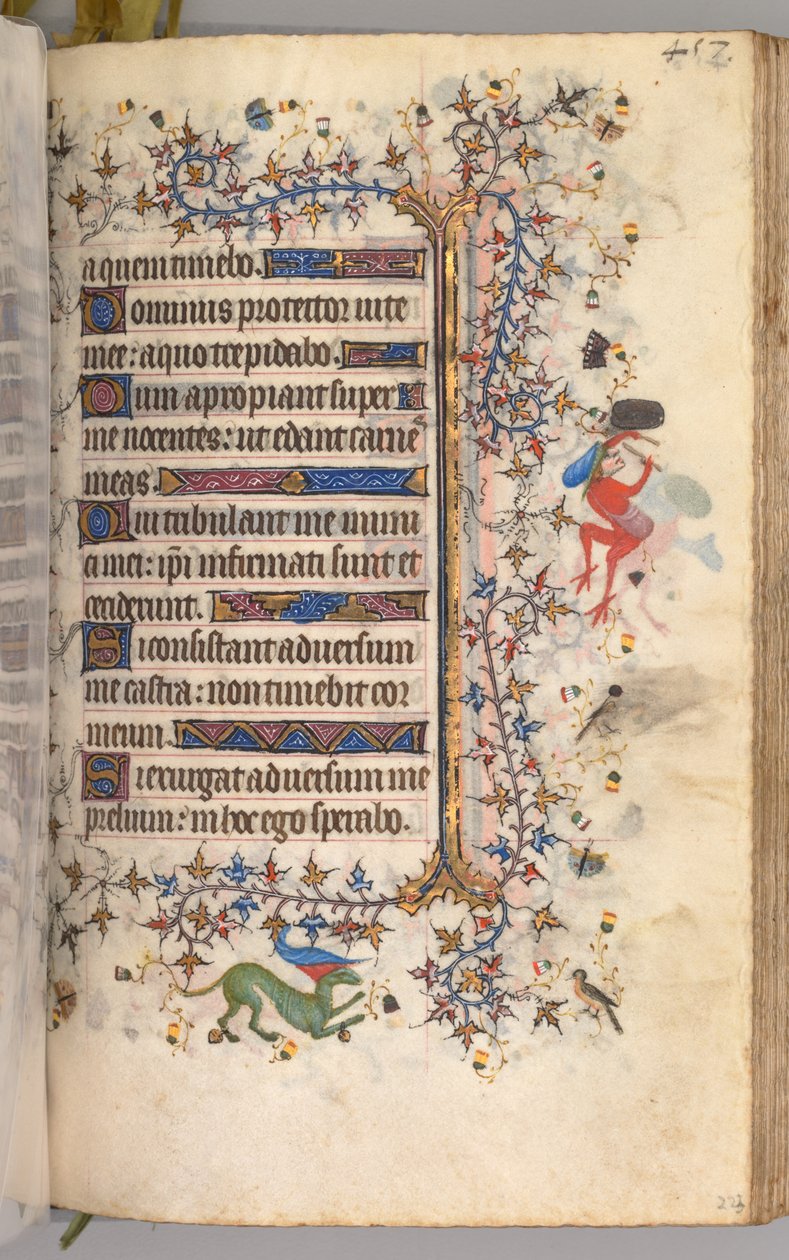 457.
a quem timebo.
Dominus protector uite
mee: a quo trepidabo.
Dum apropiant super
me nocentes: ut edant carnēs
meas.
Qui tribulant me inimi
ci mei: ipi̅ infirmati sunt et
ceciderunt.
Si consistant aduersum
me castra: non timebit cor
meum.
Si exurgat aduersum me
prelium: in hoc ego sperabo.